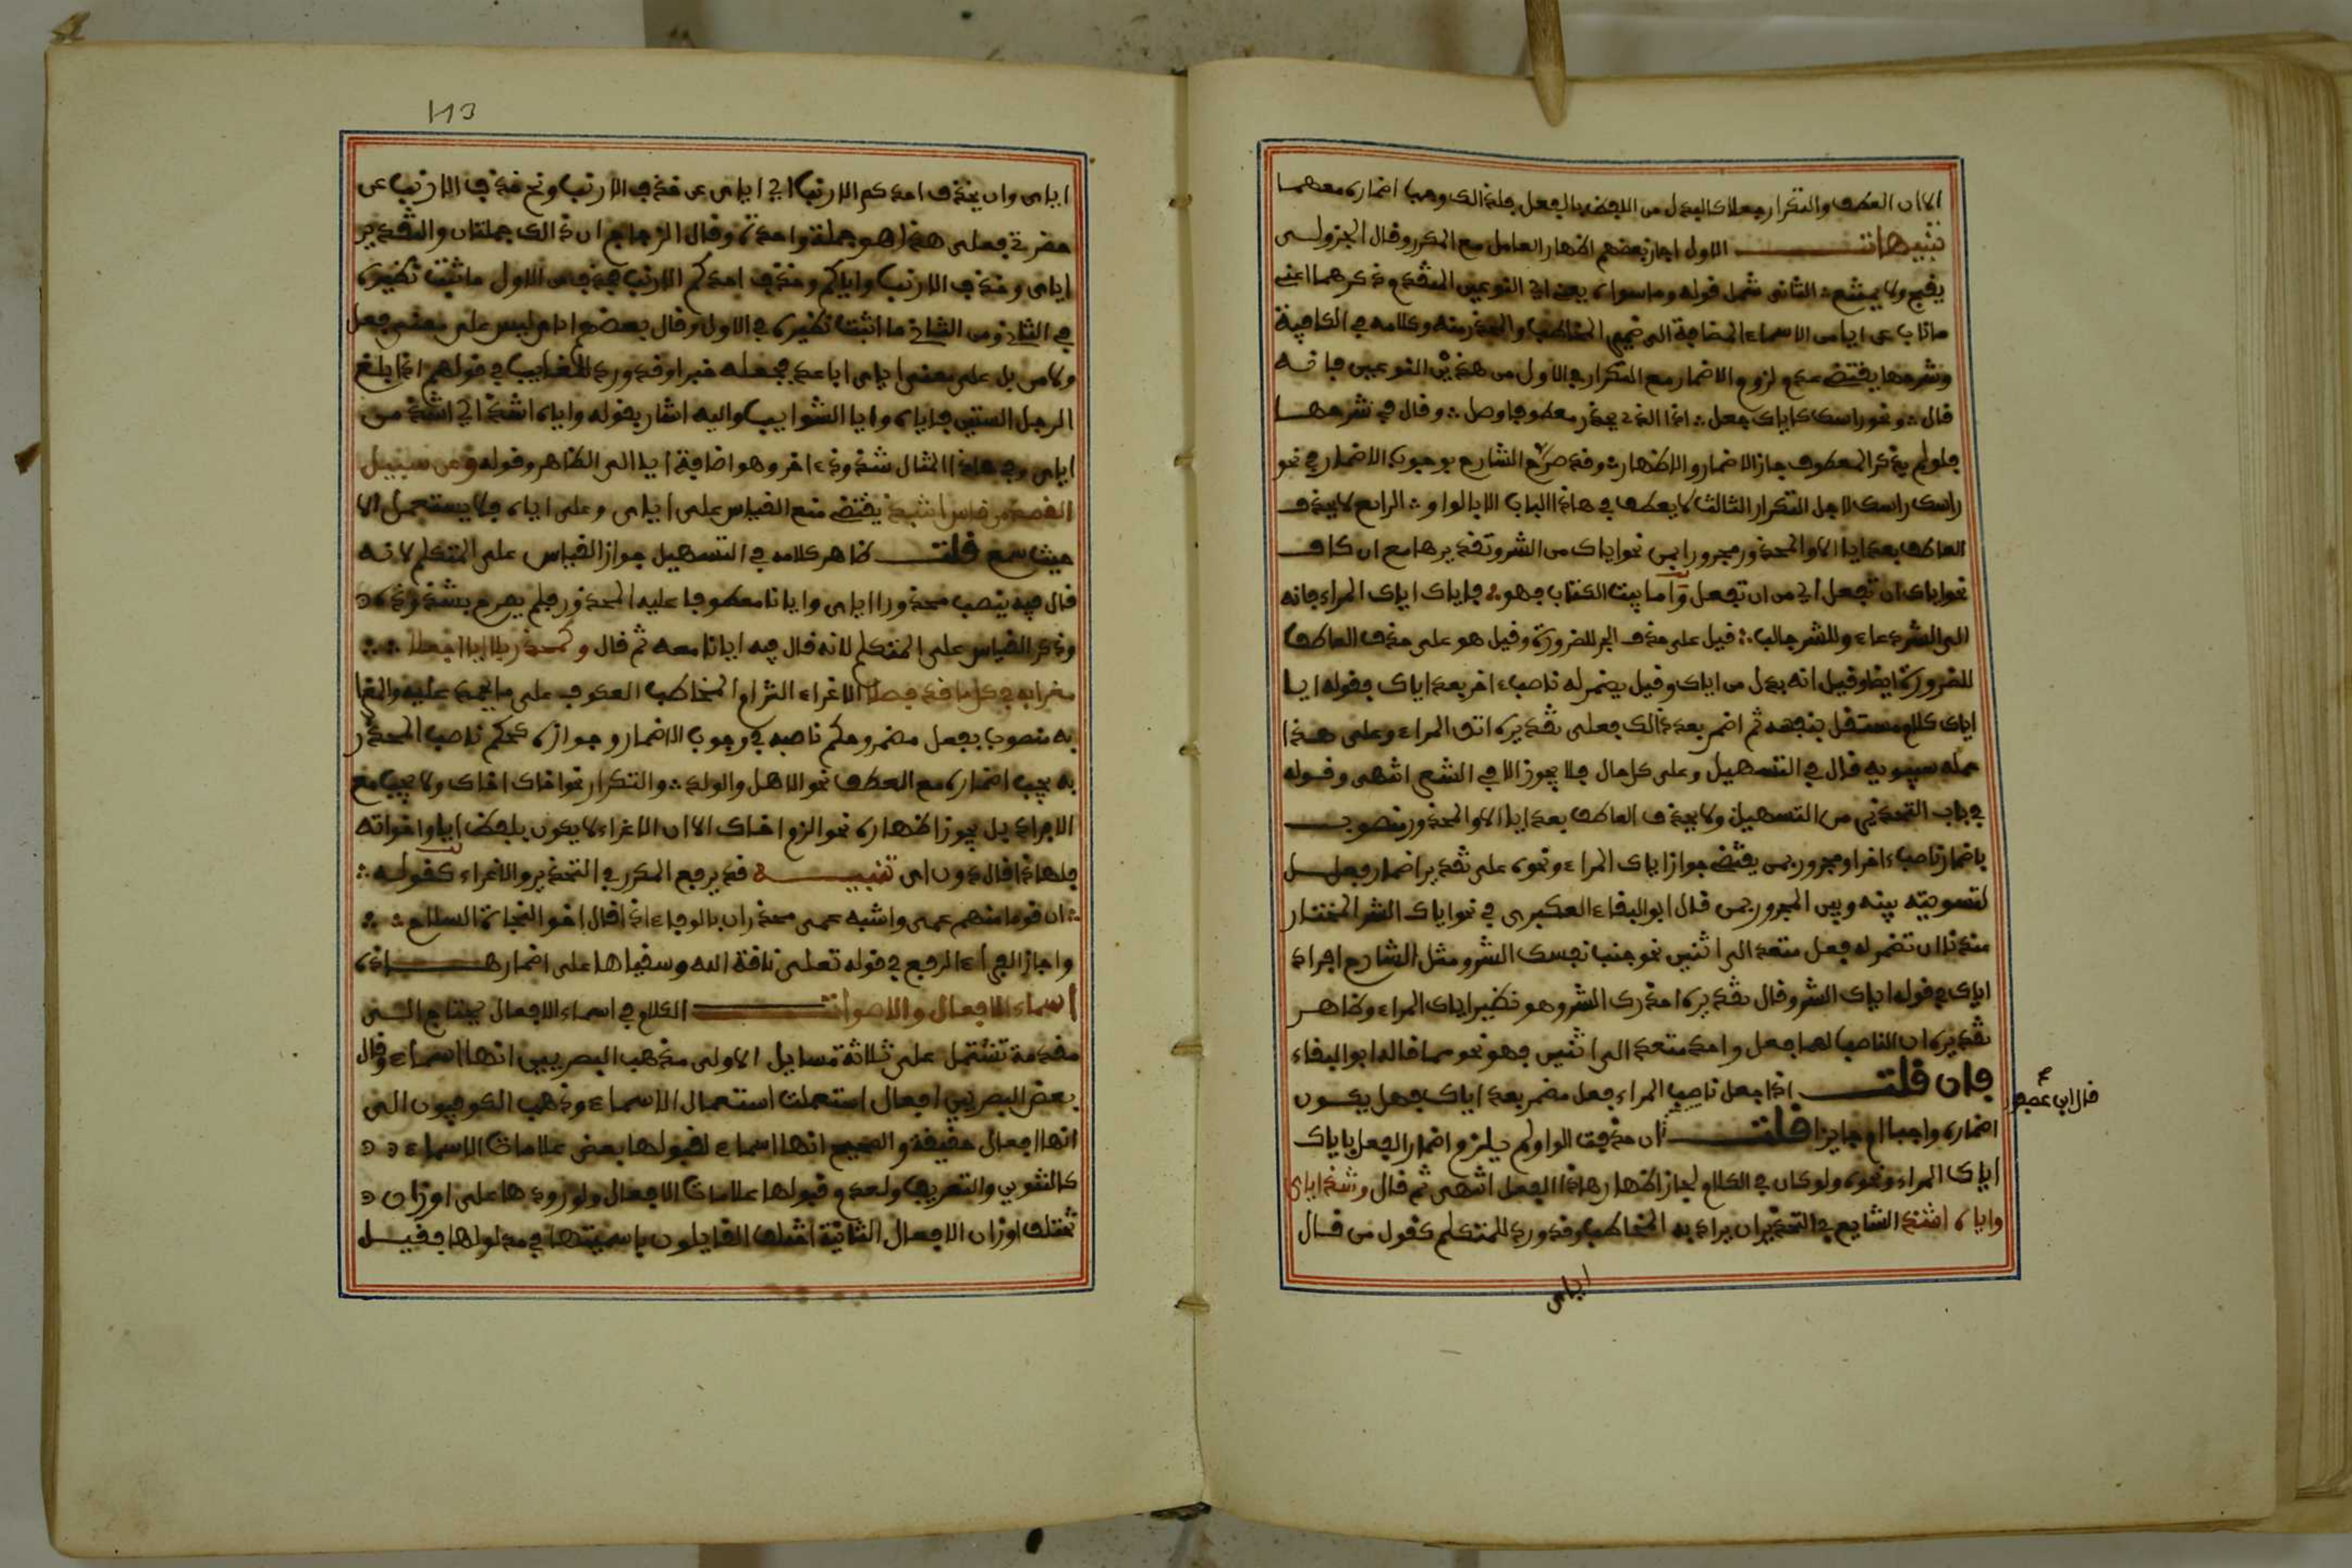 الا ان العطف والتكرار جعلا كالبدل من اللفظ بالفعل فلذالك وجب اضماره معهما
تنبيهات الاول اجاز بعضهم اظهار العامل مع المكرر وقال الجزولي
يقبح ولا يمتنع الثاني شمل قوله وما سواه يعني النوعين المتقدم ذكرهما اعني
ما ناب عن ايا من الاسماء المضافة الى ضمير المخاطب والمحذر منه وكلامه في الكافية
وشرحها يقتضي عدم لزوم الاضمار مع التكرار في الاول من هذين النوعين فانه
قال ونحو راسك كاياك جعل اذا الذي يحذر معطوفا وصل وقال في شرحها
فلو لم يذكر المعطوف جاز الاضمار والاظهار وقد صرح الشارح بوجوب الاضمار في نحو
راسك راسك لاجل التكرار الثالث لا يعطف في هاذا الباب الا بالواو الرابع لا يحذف
العاطف بعد ايا الا والمحذور مجرور بمن نحو اياك من الشر وتقديرها مع ان كاف
نحو اياك ان تفعل اي من ان تفعل واما بيت الكتاب فهو فاياك اياك المراء فانه
الى الشر دعاء وللشر جالب قيل على حذف الجر للضرورة وقيل هو على حذف العاطف
للضرورة ايضا وقيل انه بدل من اياك وقيل يضمر له ناصب اخر بعد اياك فقوله ايا
اياك كلام مستقل بنفسه ثم اضمر بعد ذالك فعلى تقديره اتق المراء وعلى هذا
حمله سيبويه قال في التسهيل وعلى كل حال فلا يجوز الا في الشعر انتهى وقوله
في باب التحذير من التسهيل ولا يحذف العاطف بعد ايا الا والمحذور منصوب
باضمار ناصب اخر او مجرور بمن يقتضي جواز اياك المراء ونحوه على تقدير اضمار فعل
لتسويته بينه وبين المجرور بمن قال ابو البقاء العكبري في نحو اياك الشر المختار
عندنا ان تضمر له فعل متعد الى اثنين نحو جنب نفسك الشر ومثل الشارح افراد
اياك في قوله اياك الشر وقال تقديره احذرك الشر وهو نظير اياك المراء وظاهر
تقديره ان الناصب لهما فعل واحد متعد الى اثنين فهو نحو مما قاله ابو البقاء
فان قلت اذا جعل ناصب المراء فعل مضمر بعد اياك فهل يكون
اضماره واجبا او جايزا قلت ان حذفت الواو لم يلزم اضمار الفعل باياك
اياك المراء ونحوه ولو كان في الكلام لجاز اظهار هاذا الفعل انتهى ثم قال وشذ اياي
واياه اشذ الشايع في التحذير ان يراد به المخاطب وقد ورد للمتكلم كقول من قال
اياي
قال ابن عصفور
113
اياي وان يحذف احدكم الارنب اي اياي عن حذف الارنب ونح حذف الارنب عن
حضرتي فعلى هذا هو جملة واحدة وقال الزجاج ان ذالك جملتان والتقدير
اياي وحذف الارنب واياكم وحذف احدكم الارنب فحذف من الاول ما اثبت نظيره
في الثاني ومن الثاني ما اثبت نظيره في الاول وقال بعضهم اياي ليس على معنى فعل
ولامن بل على معنى اياي اباعد فجعله خبرا وقد ورد للغايب في قولهم اذا بلغ
الرجل الستين فاياه وايا الشواب واليه اشار بقوله واياه اشذ اي اشذ من
اياي وفي هاذا المثال شذوذ اخر وهو اضافة ايا الى الظاهر وقوله وعن سبيل
القصد من قاس انتبذ يقتضي منع القياس على اياي وعلى اياه فلا يستعمل الا
حيث سمع قلت ظاهر كلامه في التسهيل جواز القياس على المتكلم لانه
قال فيه ينصب محذورا اياي وايانا معطوفا عليه المحذور فلم يصرح بشذوذه
وذكر القياس على المتكلم لانه قال فيه ايانا معه ثم قال وكمحذر بلا ايا اجعلا
مغرا به في كل ما قد فصلا الاغراء الزام المخاطب العكوف على ما يحمد عليه والمغرا
به منصوب بفعل مضمر وحكم ناصبه في وجوب الاضمار وجوازه كحكم ناصب المحذر
به يجب اضماره مع العطف نحو الاهل والولد والتكرار نحو اخاك اخاك ولا يجب مع
الافراد بل يجوز اظهاره نحو الزم اخاك الا ان الاغراء لا يكون بلفظ ايا واخواته
فلهاذا قال دون اي تنبيه قد يرفع المكرر في التحذير والاغراء كقوله
ان قوما منهم عمير واشبه عمير محذران بالوفاء اذا قال اخو النجدة السلاح
واجاز الفراء الرفع في قوله تعلى ناقة الله وسقياها على اضمار هاذه
اسماء الافعال والاصوات الكلام في اسماء الافعال يحتاج الى
مقدمة تشتمل على ثلاثة مسايل الاولى مذهب البصريين انها اسماء وقال
بعض البصريين افعال استعملت استعمال الاسماء وذهب الكوفيون الى
انها افعال حقيقة والصحيح انها اسماء لقبولها بعض علامات الاسماء
كالتنوين والتعريف ولعدم قبولها علامات الافعال ولورودها على اوزان
تخالف اوزان الافعال الثانية اختلف القايلون باسميتها في مدلولها فقيل